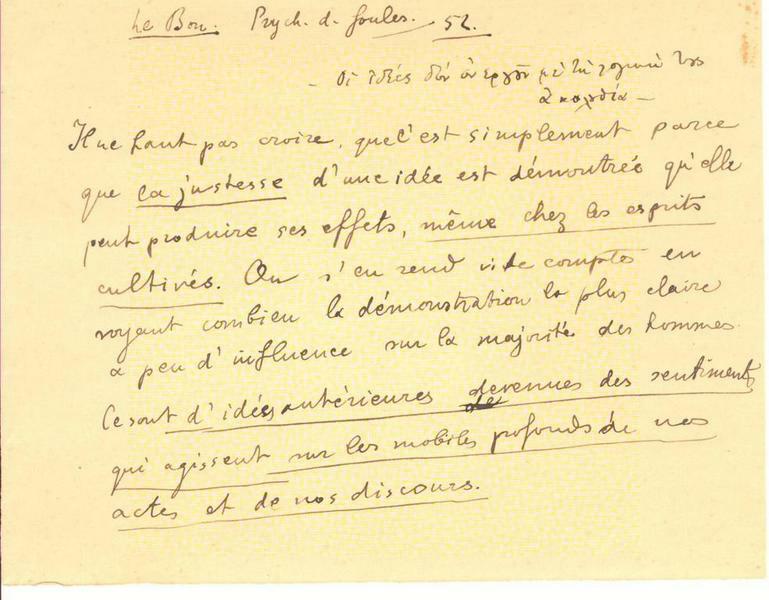 Le Bon. Psych. d. foules. 52.
– Οι ιδέες δεν αν εργούν με τη λογική της
Il ne faut pas croire, que c'est simplement parce
que la justesse d'une idée est démontrée qu'elle
peut produire ses effets, même chez les esprits
cultivés. On s'en rend vite compte en
voyant combien la démonstration la plus claire
a peu d'influence sur la majorité des hommes.
Ce sont d'idées antérieures devenues des sentiments
qui agissent sur les mobiles profonds de nos
actes et de nos discours.